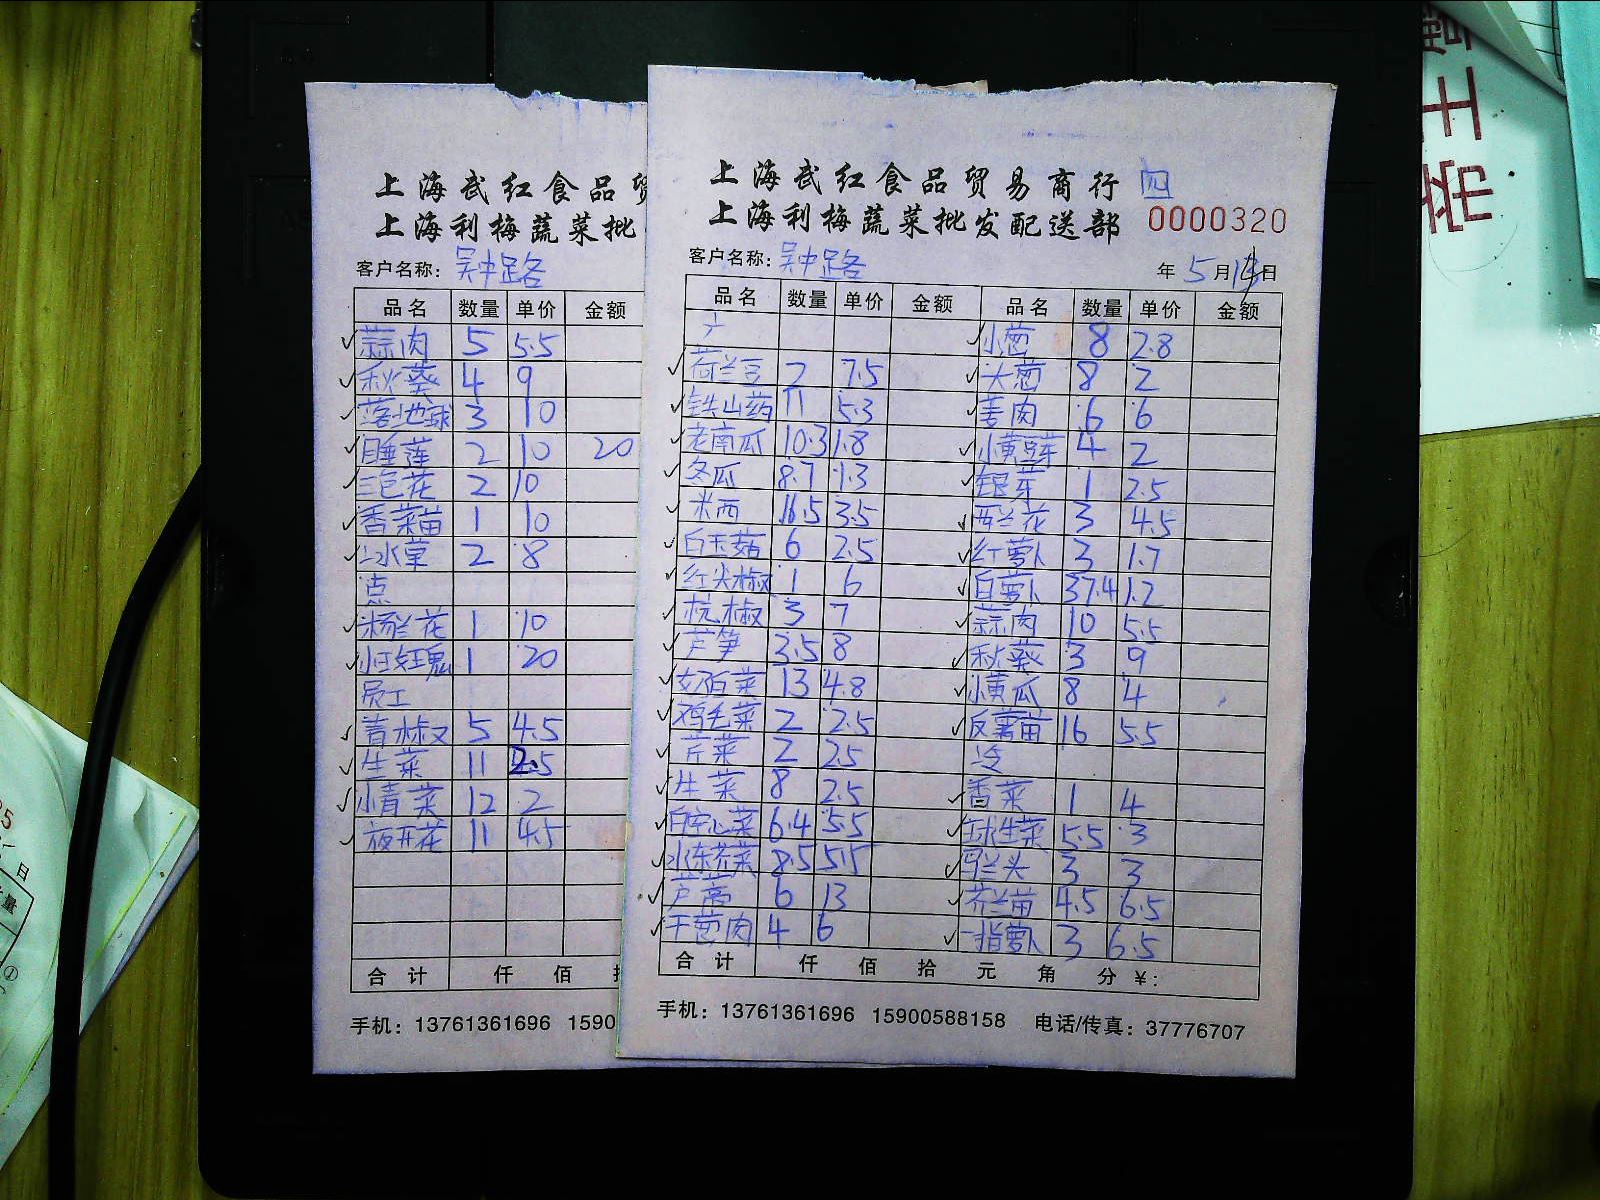 上海武红食品贸
上海利梅蔬菜批
客户名称：吴中路
品名 数量 单价 金额
蒜肉 5 5.5
秋葵 4 9
落地球 3 10
睡莲 2 10 20
三色花 2 10
香菜苗 1 10
冰草 2 8
点
杨兰花 1 10
小玫瑰 1 20
员工
青椒 5 4.5
生菜 11 2.5
小青菜 12 2
夜开花 11 4.5
合计 仟 佰
手机：13761361696 1590
上海武红食品贸易商行 四
上海利梅蔬菜批发配送部 0000320
客户名称：吴中路 年 5月13日
品名 数量 单价 金额 品名 数量 单价 金额
小葱 8 2.8
荷兰豆 2 7.5 大葱 8 2
铁山药 11 5.3 姜肉 6 6
老南瓜 10.3 1.8 小黄豆芽 4 2
冬瓜 8.7 1.3 银芽 1 2.5
米西 16.5 3.5 西兰花 3 4.5
白玉菇 6 2.5 红萝卜 3 1.7
红尖椒 1 6 白萝卜 37.4 1.2
杭椒 3 7 蒜肉 10 5.5
芦笋 3.5 8 秋葵 3 9
奶白菜 13 4.8 小黄瓜 8 4
鸡毛菜 2 2.5 反薯苗 16 5.5
芹菜 2 2.5 冷
生菜 8 2.5 香菜 1 4
白空心菜 6.4 5.5 球生菜 5.5 3
水东芥菜 8.5 5.5 马兰头 3 3
芦蒿 6 13 芥兰苗 4.5 6.5
干葱肉 4 6 一指萝卜 3 6.5
合计 仟 佰 拾 元 角 分 ¥：
手机：13761361696 15900588158 电话/传真：37776707